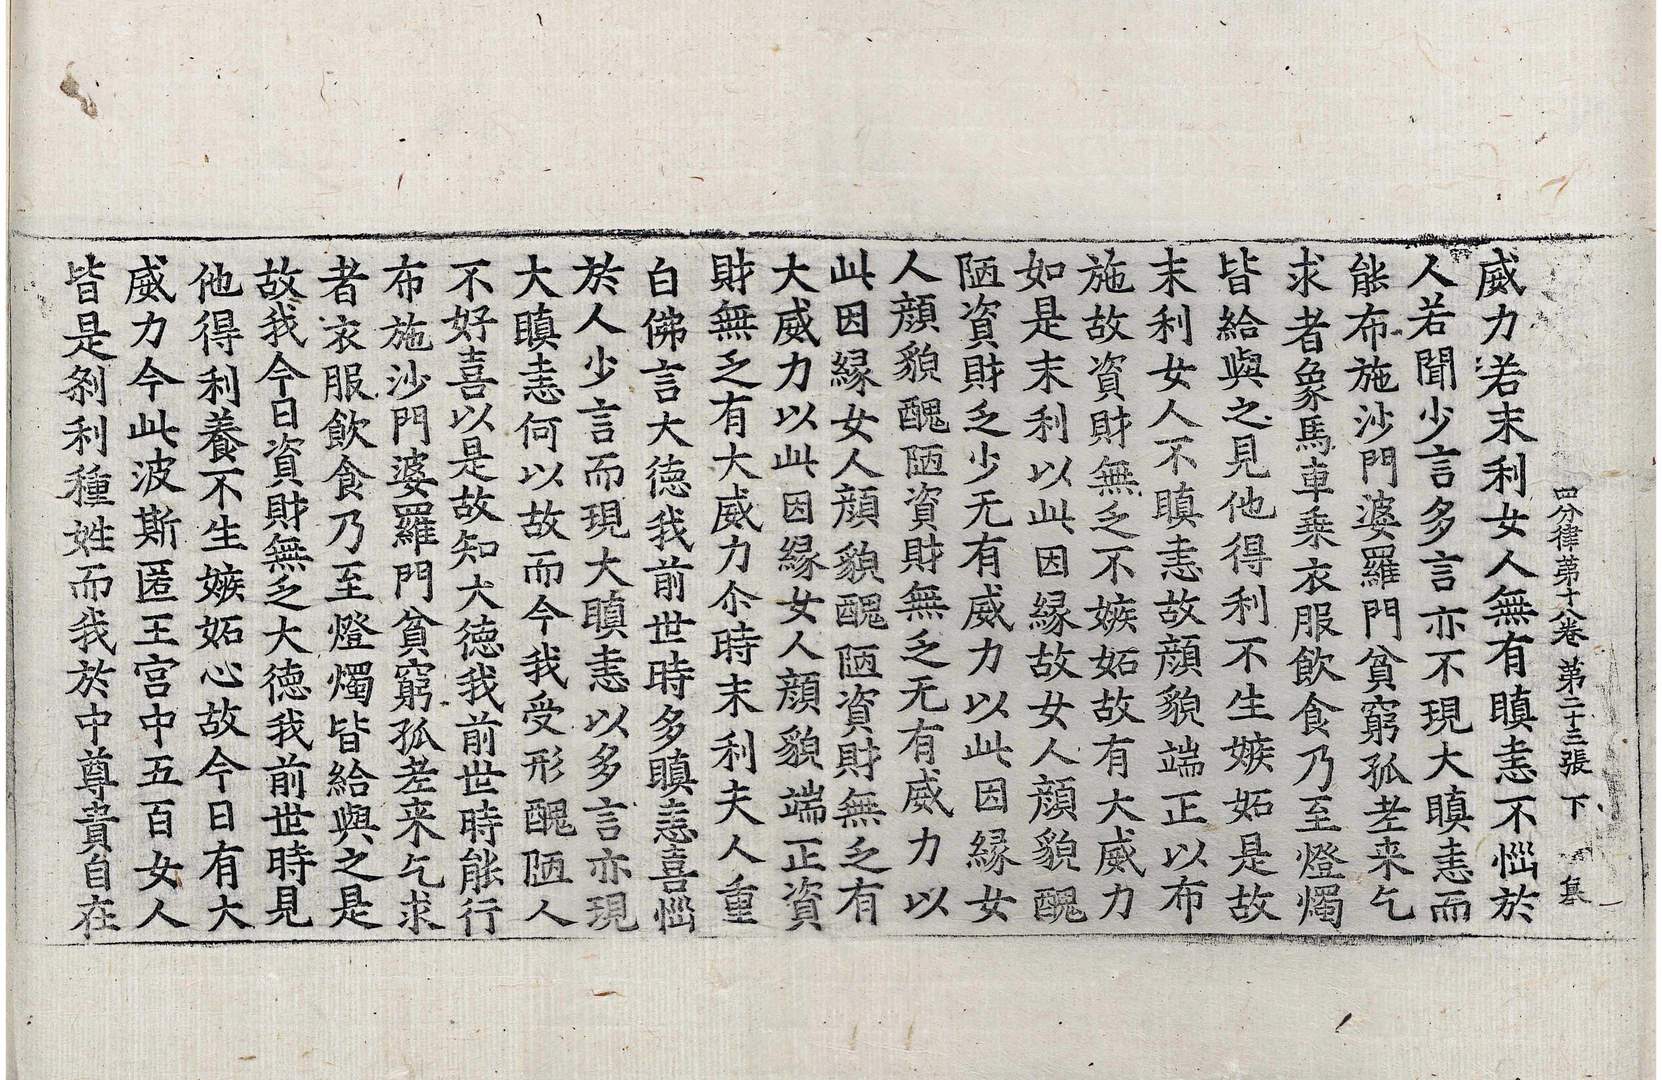 四分律第十八卷 第二十三張 下 
威力若末利女人無有瞋恚不惱於
人若聞少言多言亦不現大瞋恚而
能布施沙門婆羅門貧窮孤老来乞
求者象馬車乗衣服飲食乃至燈燭
皆給與之見他得利不生嫉妬是故
末利女人不瞋恚故顔貌端正以布
施故資財無乏不嫉妬故有大威力
如是末利以此因縁故女人顔貌醜
陋資財乏少无有威力以此因縁女
人顔貌醜陋資財無乏无有威力以
此因縁女人顔貌醜陋資財無乏有
大威力以此因縁女人顔貌端正資
財無乏有大威力尒時末利夫人重
白佛言大德我前世時多瞋恚喜惱
於人少言而現大瞋恚以多言亦現
大瞋恚何以故而今我受形醜陋人
不好喜以是故知大德我前世時能行
布施沙門婆羅門貧窮孤老来乞求
者衣服飲食乃至燈燭皆給與之是
故我今日資財無乏大德我前世時見
他得利養不生嫉妬心故今日有大
威力今此波斯匿王宮中五百女人
皆是刹利種姓而我於中尊貴自在